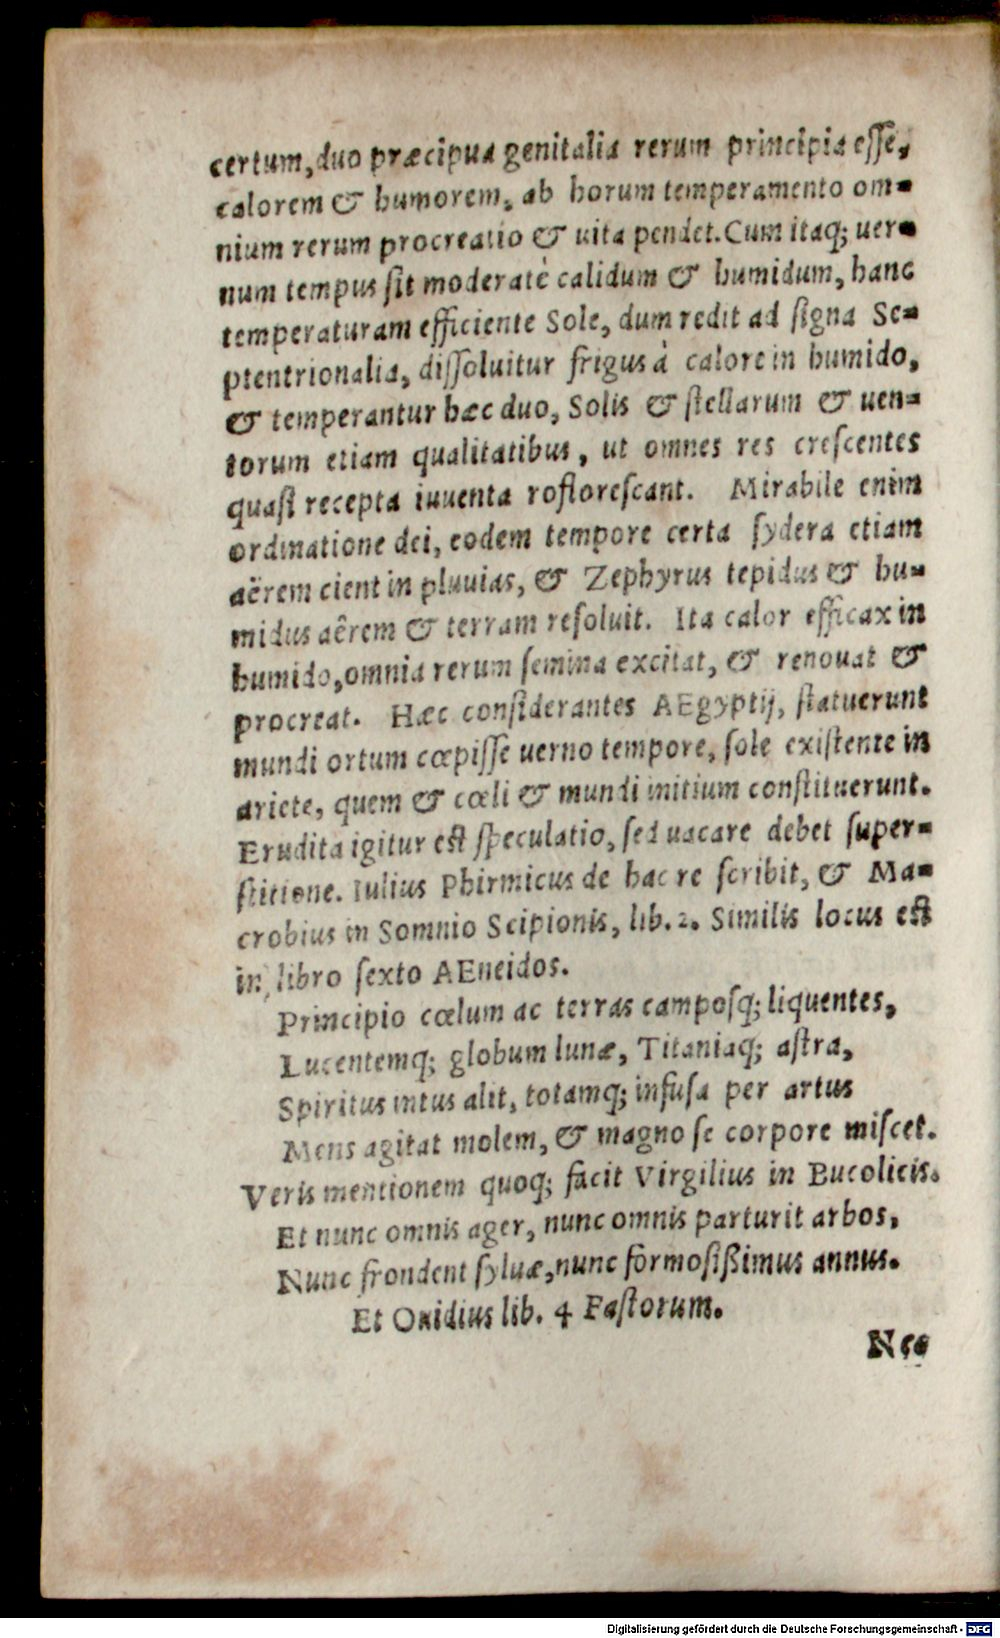 certum, duo præcipua genitalia rerum principia esse,
calorem & humorem, ab horum temperamento om-
nium rerum procreatio & uita pendet. Cum itaq; uer-
num tempus sit moderatè calidum & humidum, hanc
temperaturam efficiente Sole, dum redit ad signa Se-
ptentrionalia, dissoluitur frigus à calore in humido,
& temperantur hæc duo, Solis & stellarum & uen-
torum etiam qualitatibus, ut omnes res crescentes
quasi recepta iuuenta roflorescant. Mirabile enim
ordinatione dei, eodem tempore certa sydera etiam
aërem cient in pluuias, & Zephyrus tepidus & hu-
midus aêrem & terram resoluit. Ita calor efficax in
humido, omnia rerum semina excitat, & renouat &
procreat. Hæc considerantes AEgyptij, statuerunt
mundi ortum cœpisse uerno tempore, sole existente in
ariete, quem & cœli & mundi initium constituerunt.
Erudita igitur est speculatio, sed uacare debet super-
stitione. Iulius Phirmicus de hac re scribit, & Ma-
crobius in Somnio Scipionis, lib. 2. Similis locus est
in libro sexto AEneidos.
Principio cœlum ac terras camposq; liquentes,
Lucentemq; globum lunæ, Titaniaq; astra,
Spiritus intus alit, totamq; infusa per artus
Mens agitat molem, & magno se corpore miscet.
Veris mentionem quoq; facit Virgilius in Bucolicis.
Et nunc omnis ager, nunc omnis parturit arbos,
Nunc frondent syluæ, nunc formosißimus annus.
Et Ouidius lib. 4 Fastorum.
Nec
Digitalisierung gefördert durch die Deutsche Forschungsgemeinschaft - DFG